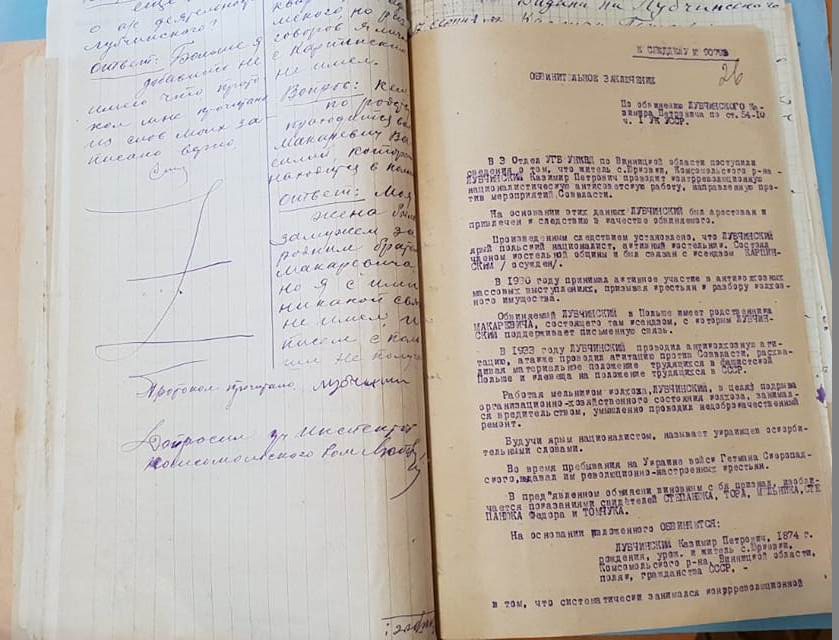 о а деятельнос
Лубчинского?
Ответ: Больше я
добавить не
имею что прото-
кол мне прочитан
из слов моих за-
писано верно
говоров я
с Карпинским
не имел.
Вопрос: Кем
по родству
приходится вам
Макаревич Ва
силий, который
находится в поль
Ответ: Моя
жена была
замужем за
родным братом
Макаревича
но я с ним
никакой свя
не имел, и
писем с поль
ши не получа
Протокол прочитано Лубчинский
Допросил
Комсомольского
Лубчинского
К СЛЕДДЕЛУ №
26
ОБВИНИТЕЛЬНОЕ ЗАКЛЮЧЕНИЕ
По обвинению ЛУБЧИНСКОГО Ка-
зимира Петровича по ст.54-10
ч. 1 УК УССР.
В 3 Отдел УГБ УНКВД по Винницкой области поступили
сведения о том, что житель с.Юровки, Комсомольского р-на-
ЛУБЧИНСКИЙ Казимир Петрович проводит контрреволюционную
националистическую антисоветскую работу, направленную про-
тив мероприятий Соввласти.
На основании этих данных ЛУБЧИНСКИЙ был арестован и
привлечен к следствию в качестве обвиняемого.
Произведенным следствием установлено, что ЛУБЧИНСКИЙ
ярый польский националист, активный костельник. Состоял
членом костельной общины и был связан с ксендзом КАРПИН-
СКИМ / осужден/.
В 1930 году принимал активное участие в антиколхозных
массовых выступлениях, призывая крестьян к разбору колхоз-
ного имущества.
Обвиняемый ЛУБЧИНСКИЙ в Польше имеет родственника
МАКАРЕВИЧА, состоящего там ксендзом, с которым ЛУБЧИН-
СКИЙ поддерживает письменную связь.
В 1933 году ЛУБЧИНСКИЙ проводил антиколхозную аги-
тацию, а также проводил агитацию против Соввласти, расхва-
ливая материальное положение трудящихся в фашистской
Польше и клевеща на положение трудящихся в СССР.
Работая мельником колхоза, ЛУБЧИНСКИЙ, в целях подрыва
организационно-хозяйственного состояния колхоза, занимал-
ся вредительством, умышленно проводил недоброкачественный
ремонт.
Будучи ярым националистом, называет украинцев оскорби-
тельными словами.
Во время пребывания на Украине войск Гетмана Скоропад-
ского, выдавал им революционно-настроенных крестьян.
В пред"явленном обвинении виновным с бя признал, изобли-
чается показаниями свидетелей СТЕПАНЮКА, ТОРА, МЕЛЬНИКА, СТЕ
ПАНЮКА Федора и ТОМЧУКА.
На основании изложенного ОБВИНЯЕТСЯ:
ЛУБЧИНСКИЙ Казимир Петрович, 1874 г.
рождения, урож. и житель с.Юровки,
Комсомольского р-на, Винницкой области,
поляк, гражданства СССР. -
в том, что систематически занимался контрреволюционной